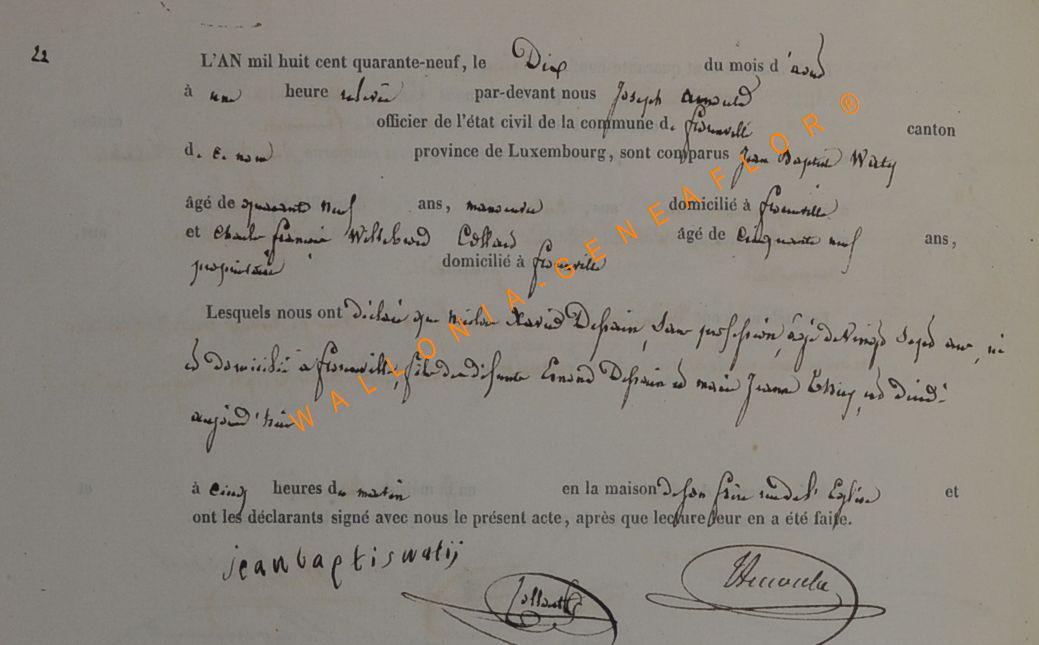 22
L'AN mil huit cent quarante-neuf, le Dix du mois d'août
à une heure relevée par-devant nous Joseph Arnould
officier de l'état civil de la commune de Florenville canton
de ce nom province de Luxembourg, sont comparus Jean Baptiste Waty
âgé de quarante neuf ans, manouvrier domicilié à Florenville
et Charle François Willebrord Collard âgé de Cinquante neuf ans,
propriétaire domicilié à Florenville
Lesquels nous ont déclaré que Nicolas Xavier Dessain, sans profession, âgé de Vingt Sept ans, né
et domicilié à Florenville, fils des défunts Dessain et marie Jeanne est décédé
aujourd'hui
à Cinq heures du matin en la maison de son frère rue de l'Eglise et
ont les déclarants signé avec nous le présent acte, après que lecture leur en a été faite.
jeanbaptiswatij
Collard
JArnould
WALLONIA-GENEAFLOR ®